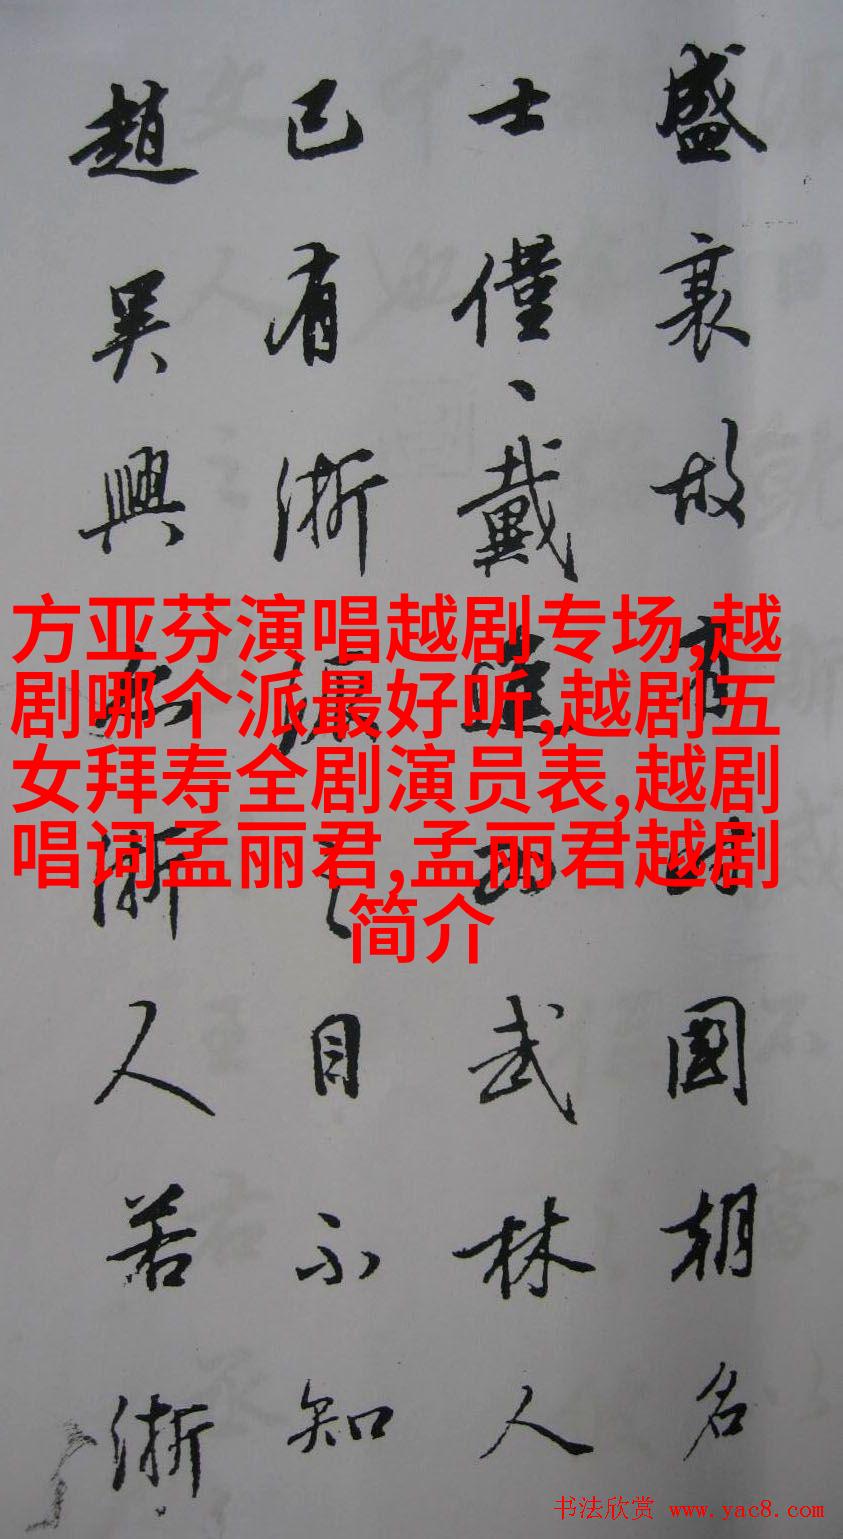 盛衰故有時國朝名
士僅、戴進為武林人
已有浙派之目不知
趙吳興亦浙人若浙
方亚芬演唱越剧专场,越
剧哪个派最好听,越剧五
女拜寿全剧演员表,越剧
唱词孟丽君,孟丽君越剧
简介
书法欣赏 www.yac8.com